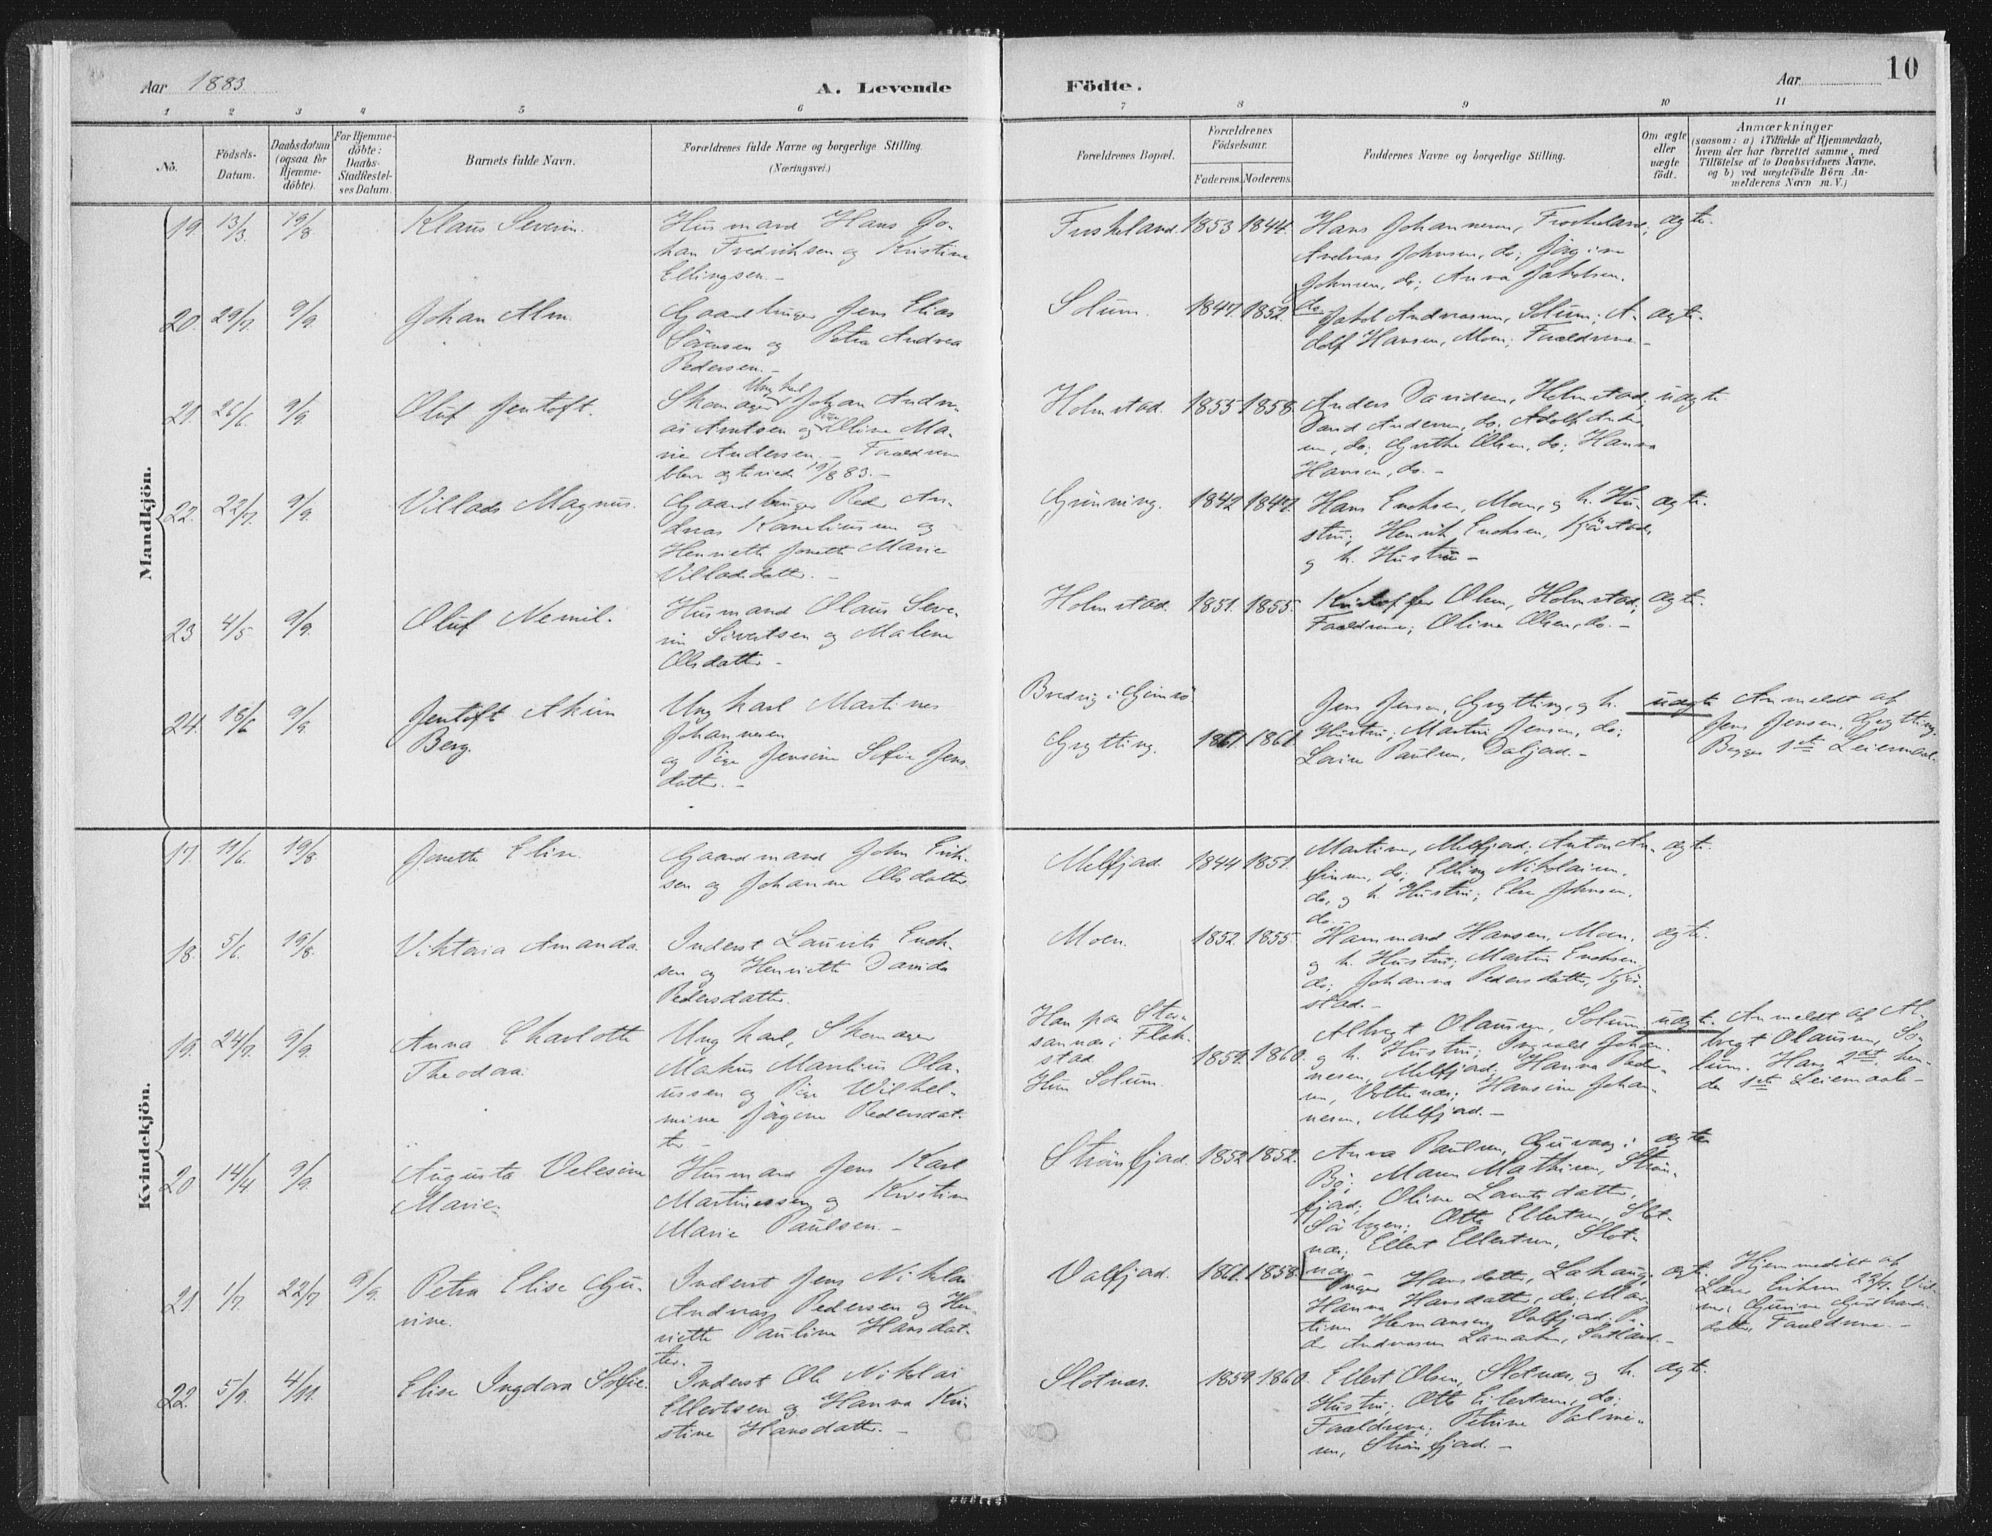 Aar 1883
A. Levende
Födte.
Aar
10
1 2 3 4 5 6 7 8 9 10 11
No.
Födsels-
Datum.
Daabsdatum
(ogsaa for
Hjemme-
döbte).
For Hjemme-
döbte:
Daabs-
Stadfæstel-
ses Datum.
Barnets fulde Navn.
Forældrenes fulde Navne og borgerlige Stilling.
(Næringsvei.)
Forældrenes Bopæl.
Forældrenes
Födselsaar.
Faderens. Moderens.
Faddernes Navne og borgerlige Stilling.
Om ægte
eller
uægte
födt.
Anmærkninger
(saasom: a) i Tilfælde af Hjemmedaab,
hvem der har forrettet samme, med
Tilföielse af to Daabsvidners Navne,
og b) ved uægtefödte Börn An-
melderens Navn m. V.)
Mandkjön.
19. 13/3. 19/8 Klaus Severin.
Husmand Hans Jo-
han Fredriksen og Kristine
Ellingsen. -
1853 1844.
Hans Johannesen, ægte.
Andreas Johnsen, do; Jörgine
Johnsen, do; Anna Jakobsen,
do
20 29/7. 9/9. Johan Alm.
Gaardbruger Jens Elias
Sörensen og Petra Andrea
Pedersen. -
Solum. 1847. 1852.
Jakob Andreassen, Solum; A- ægte.
dolf Hansen, Moen; Forældrene -
21. 26/6. 9/9. Oluf Jentoft.
Ungkarl
Skomager Johan Andre-
as Arntsen og Pige Oline Ma-
rie Andersen. - Forældrene
blev ægteviede 19/8 83. -
Holmstad. 1855 1858.
Anders Davidsen, Holmstad, uægte
David Andersen, do, Adolf Ander-
sen, do; Grethe Olsen, do; Hanna
Hansen, do. -
22. 22/7. 9/9. Villads Magnus.
Gaardbruger Peder An-
dreas Korneliussen og
Henriette Jonette Marie
Villadsdatter. -
Grünning. 1842 1847.
Hans Enoksen, Moen, og h. Hu- ægte.
stru; Henrik Enoksen, Kjörstad,
og h. Hustru -
23 4/5. 9/9. Oluf Nemil.
Husmand Olaus Seve-
rin Sivertsen og Malene
Olsdatter -
Holmstad. 1851. 1855.
Kristoffer Olsen, Holmstad; ægte.
Forældrene; Oline Olsen, do. -
24. 18/6 9/9. Jentoft Akim
Berg.
Ungkarl Martines
Johannesen
og Pige Jensine Sofie Jens-
datter. -
Bredvig i Gimsö
Grytting. 1861. 1861
Jens Jensen, Grytting, og h. uægte
Hustru; Martin Jensen, do;
Lovise Paulsen, Valfjord. -
Anmeldt af
Jens Jensen, Grytting.
Begges 1ste Leiermaal.
Kvindekjön.
17. 11/6. 19/8. Jonette Elise.
Gaardmand John Erik-
sen og Johanne Olsdatter
Melfjord. 1844 1851.
Martine, Melfjord; Anton An- ægte.
finsen, do; Elling Nikolaisen,
do, og h. Hustru; Elen Johnsen,
do. -
18. 5/6. 19/8. Viktoria Amanda.
Inderst Laurits Enok-
sen og Henriette Davida
Pedersdatter.
Moen. 1852. 1855.
Hammond Hansen, Moen, ægte.
og h. Hustru; Martin Enoksen,
do; Johanna Pedersdatter, Kjör-
stad. -
19. 24/7. 9/9. Anna Charlotte
Theodora.
Ungkarl, Skomager
Markus Martius Ola-
ussen og Pige Wilhel-
mine Jörgine Pedersdat-
ter -
Han paa Stor-
sannæs i Flak-
stad
Hun Solum. 1859. 1860.
Albregt Olaussen, Solum uægte.
og h. Hustru; Ingvald Johan-
nesen, Melfjord; Hanna Peder-
sen, Votternæs; Hansine Johan-
nesen, Melfjord. -
Anmeldt af Al-
bregt Olaussen, So-
lum. Hans 2det hen-
des 1ste Leiermaal -
20 14/4 9/9. Augusta Velesine
Marie.
Husmand Jens Karl
Martinessen og Kristine
Marie Paulsen. -
Strönfjord. 1852 1852.
Anna Paulsen, i ægte
Bö; Maren Mathisen, Strön-
fjord; Oline Lauritsdatter,
Sörbyen; Otto Ellertsen, Slot-
næs; Ellert Ellertsen, Slot-
næs -
21 1/7. 22/7 9/9. Petra Elise Gu-
rine.
Inderst Jens Nikolai
Andreas Pedersen og Hen-
riette Pauline Hansdat-
ter. -
Valfjord. 1861. 1858.
Inger Hansdatter, Lahaug, ægte.
Hanna Hansdatter, do; Mar-
tine Hermansen, Valfjord; Pe-
der Andreassen
Hjemmedöbt af
Lars Eriksen 22/7. Vid-
ner:
datter, Forældrene. -
22. 5/9. 4/11. Elise Ingdora Sofie.
Inderst Ole Nikolai
Ellertsen og Hanna Kri-
stine Hansdatter. -
Slotnæs. 1859 1860.
Ellert Olsen, Slotnæs og h. ægte.
Hustru; Otto Eilertsen, do;
Forældrene; Petrine Palme-
sen, Strönfjord. -